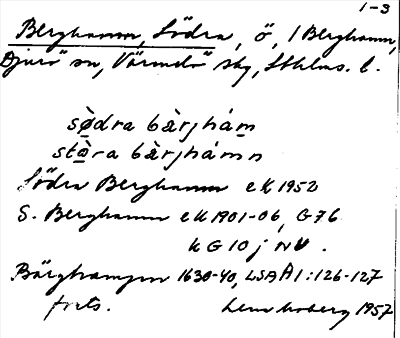 1-3
Berghamn, Södra, ö, / Berghamn,
Djurö sn, Värmdö skg, Sthlms. l.
sø̀dra bàrjhám
stò̱ra bàrjhámn
Södra Berghamn ek 1952
S. Berghamn ek 1901-06, G 76
k G 10 j NV.
Bärghampn 1630-40, LSA A1:126-127
forts. 1957